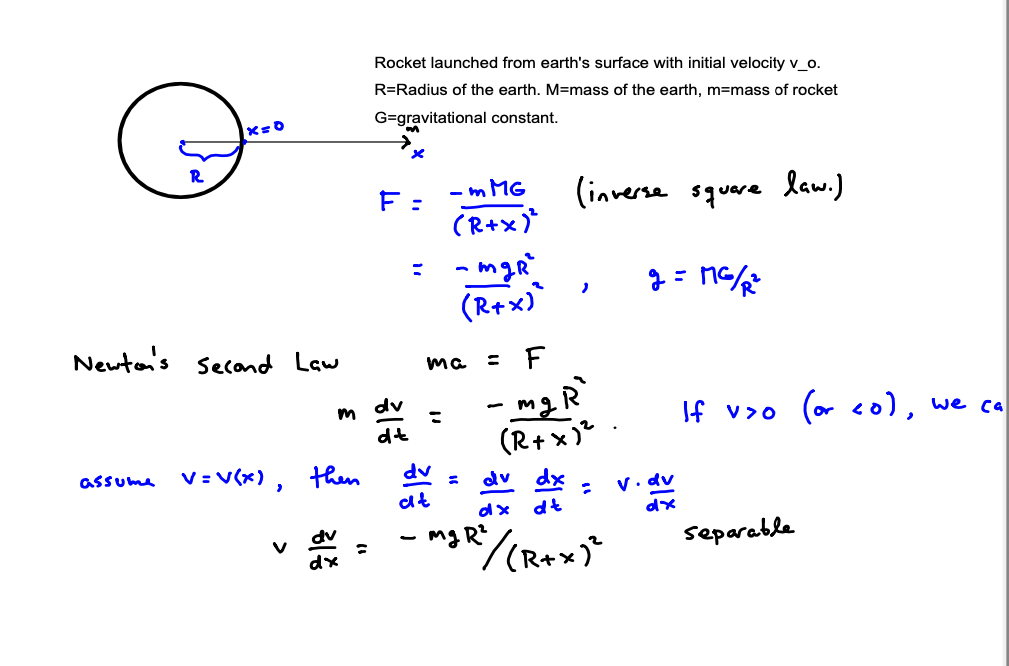 Rocket launched from earth's surface with initial velocity v_o.
R=Radius of the earth. M=mass of the earth, m=mass of rocket
G=gravitational constant.
x=0
m
x
R
F = -mMG/(R+x)² (inverse square law.)
= -mgR²/(R+x)² , g = MG/R²
Newton's Second Law ma = F
m dv/dt = -mgR²/(R+x)² . If v>0 (or <0), we ca
assume v=v(x), then dv/dt = dv/dx dx/dt = v·dv/dx
v dv/dx = -mgR²/(R+x)² separable